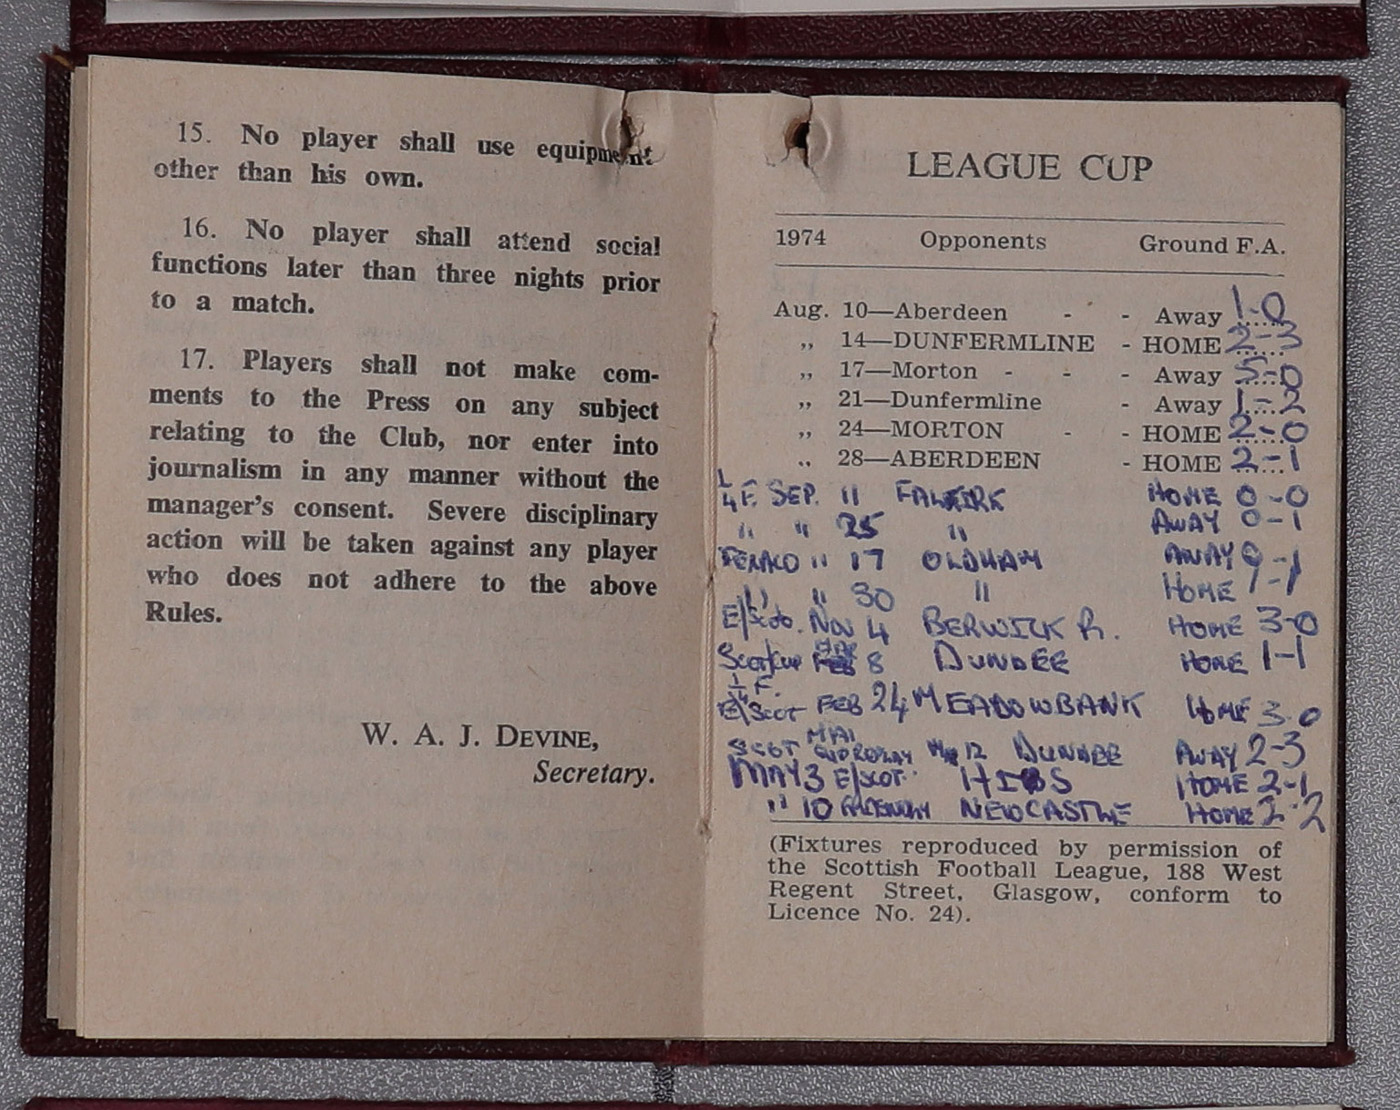 15. No player shall use equipment
other than his own.
16. No player shall attend social
functions later than three nights prior
to a match.
17. Players shall not make com-
ments to the Press on any subject
relating to the Club, nor enter into
journalism in any manner without the
manager's consent. Severe disciplinary
action will be taken against any player
who does not adhere to the above
Rules.
W. A. J. DEVINE,
Secretary.
LEAGUE CUP
1974 Opponents Ground F.A.
Aug. 10—Aberdeen - - Away 1-0
„ 14—DUNFERMLINE - HOME 2-3
„ 17—Morton - - - Away 5-0
„ 21—Dunfermline - Away 1-2
„ 24—MORTON - - HOME 2-0
„ 28—ABERDEEN - HOME 2-1
1/4 F. SEP. 11 FALKIRK HOME 0-0
" " 25 " AWAY 0-1
TEXACO " 17 OLDHAM AWAY 0-1
" " 30 " HOME 1-1
E/Scot. Nov 4 BERWICK R. HOME 3-0
Scot/Cup MAR 8 DUNDEE HOME 1-1
1/4 F.
E/SCOT FEB 24 MEADOWBANK HOME 3-0
SCOT 12 DUNDEE AWAY 2-3
MAY 3 E/SCOT. HIBS HOME 2-1
" 10 NEWCASTLE HOME 2-2
(Fixtures reproduced by permission of
the Scottish Football League, 188 West
Regent Street, Glasgow, conform to
Licence No. 24).